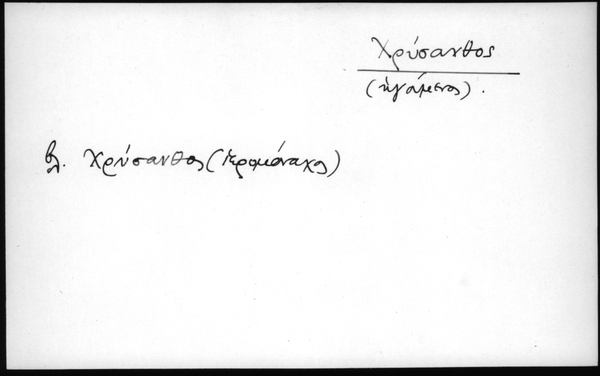 Χρύσανθος
(ἡγούμενος).
βλ. Χρύσανθος (ἱερομόναχος)